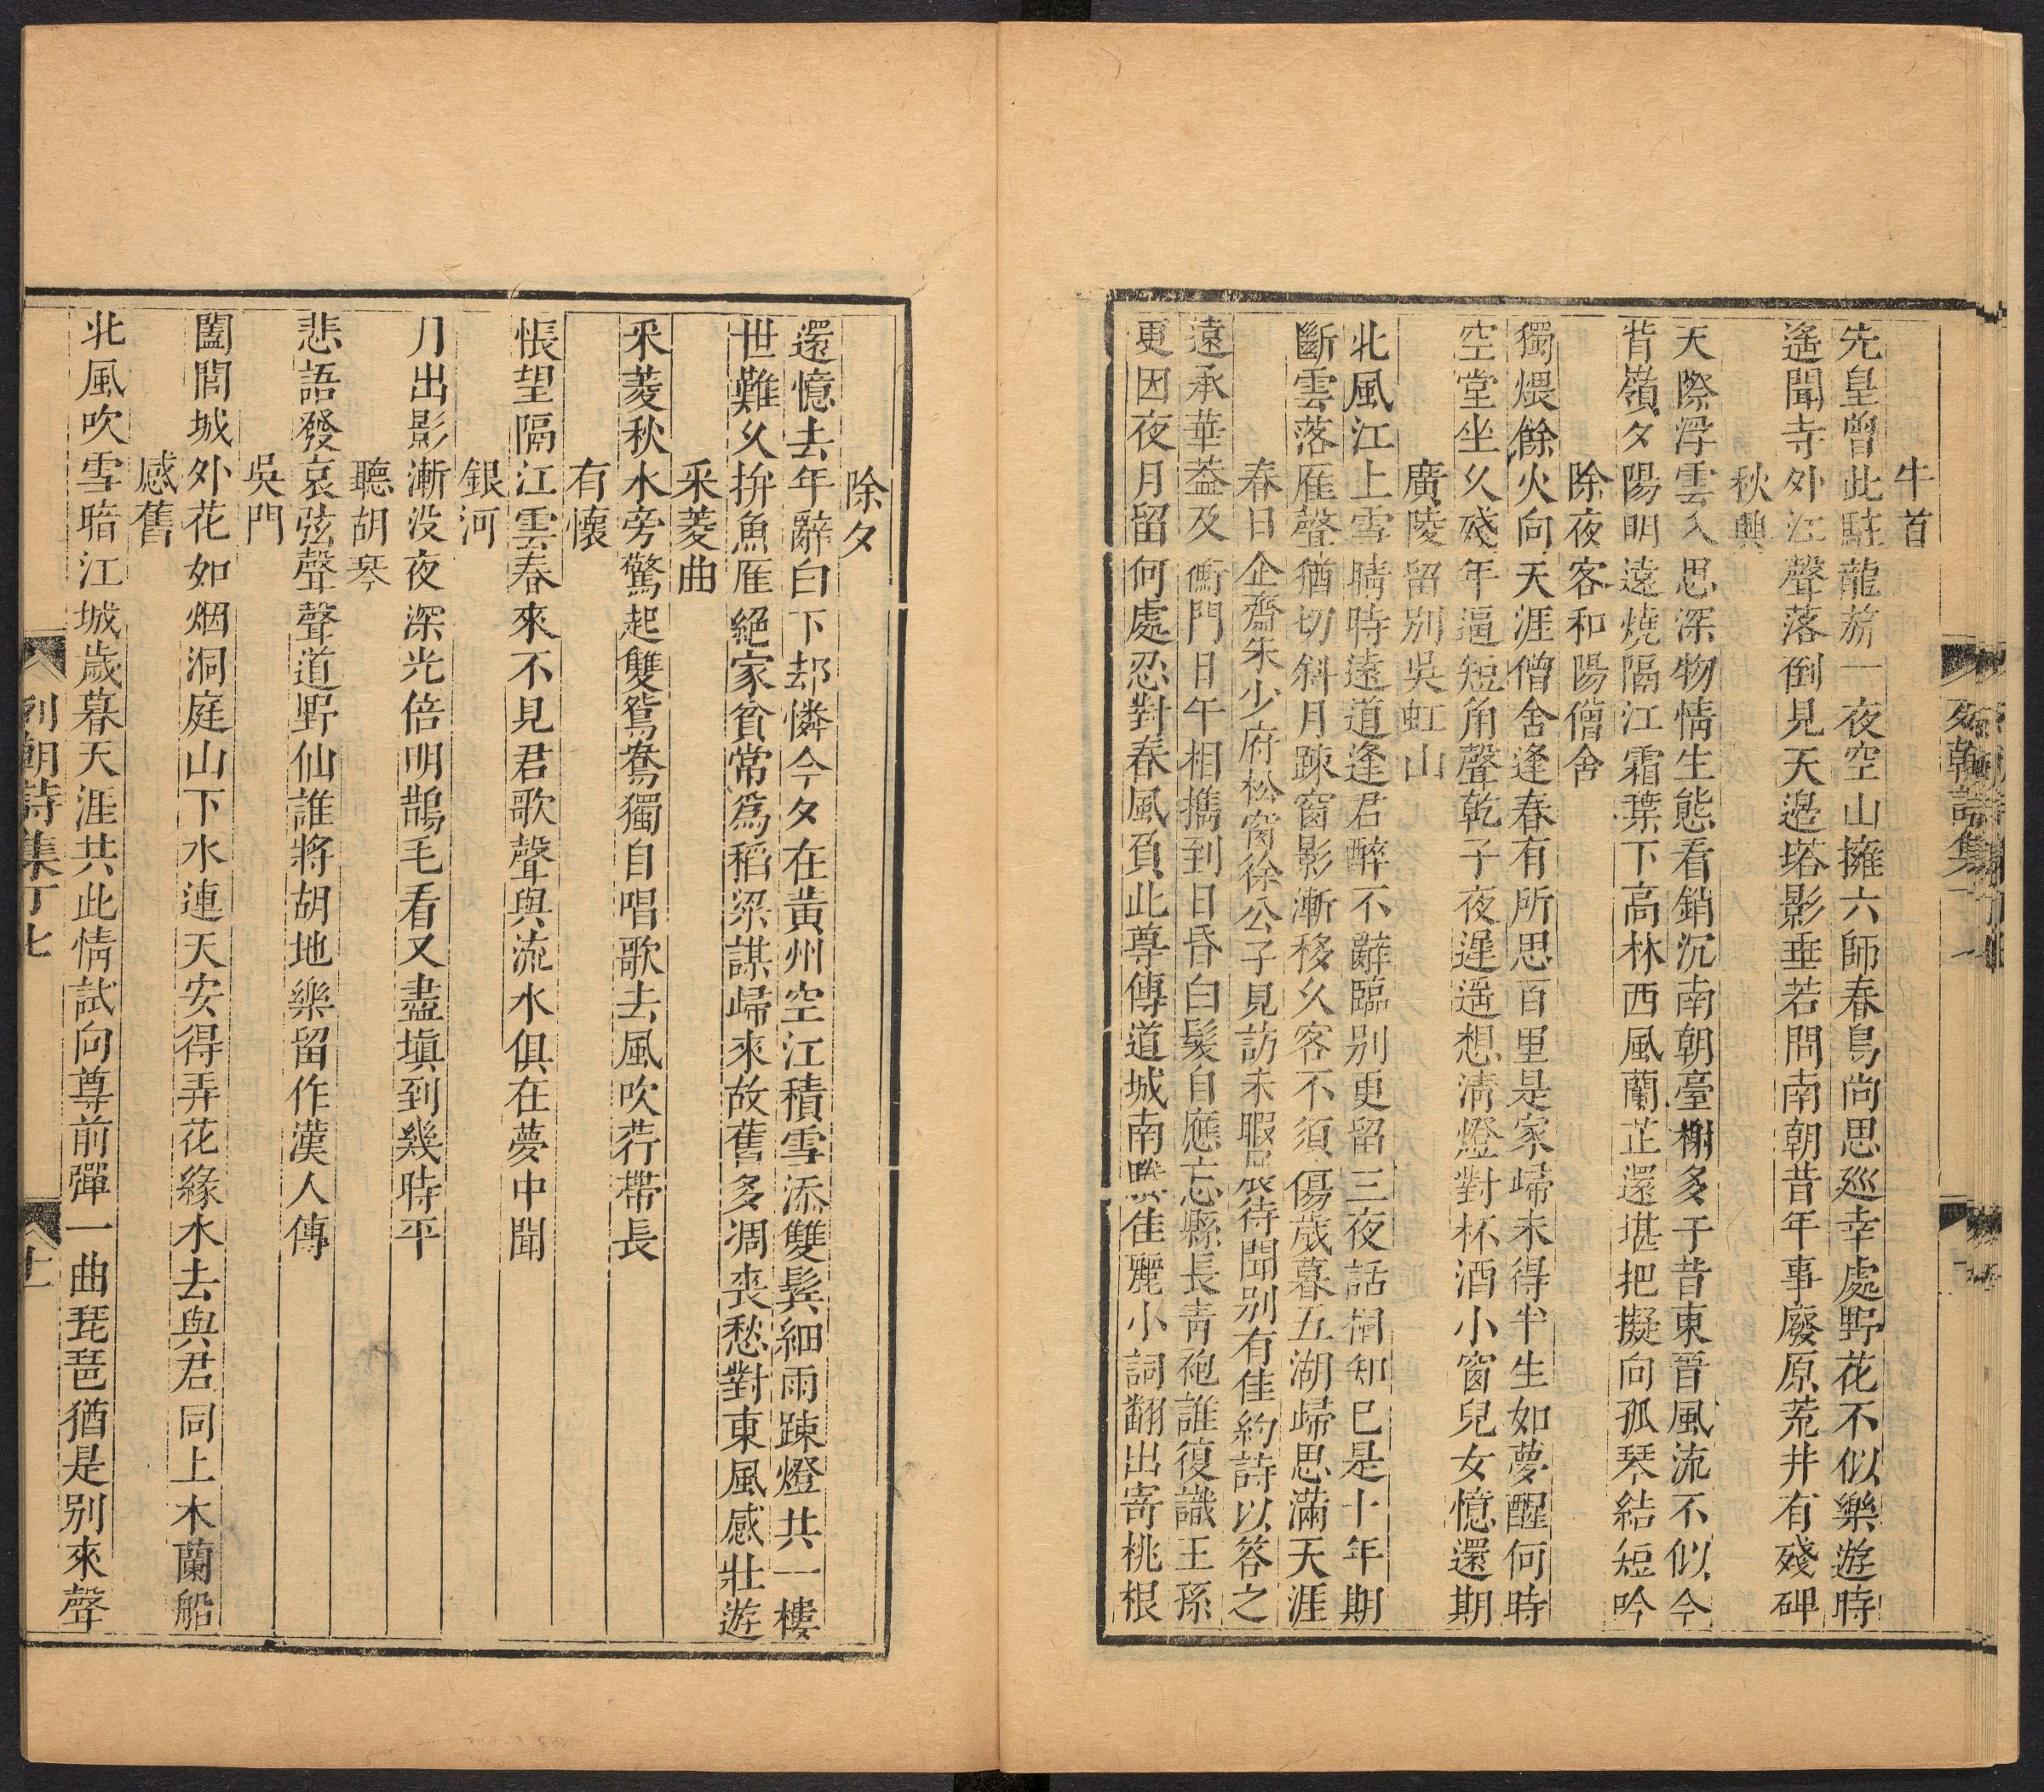 牛首
先皇曾此駐龍旂一夜空山擁六師春鳥尚思廵幸處野花不似樂遊時
遙聞寺外江聲落倒見天邉塔影垂若問南朝昔年事廢原荒井有殘碑
秋興
天際浮雲入思深物情生態看銷沉南朝臺榭多于昔東晉風流不似今
背嶺夕陽明遠燒隔江霜葉下高林西風蘭芷還堪把擬向孤琴結短吟
除夜客和陽僧舍
獨煨餘火向天涯僧舍逢春有所思百里是家歸未得半生如夢醒何時
空堂坐久殘年逼短角聲乾子夜遲遥想清燈對杯酒小窗兒女憶還期
廣陵留别吳虹山
北風江上雪晴時遠道逢君醉不辭臨别更留三夜話相知已是十年期
斷雲落雁聲猶切斜月踈窗影漸移久客不須傷歲暮五湖歸思滿天涯
春日企齋朱少府松窗徐公子見訪未暇展待聞别有佳約詩以答之
遠承華葢及衡門日午相攜到日昏白髮自應忘縣長青袍誰復識王孫
更因夜月留何處忍對春風負此尊傳道城南佳麗小詞翻出寄桃根
列朝詩集
除夕
還憶去年辭白下却憐今夕在黄州空江積雪添雙鬂細雨踈燈共一樓
世難久拚魚雁絕家貧常爲稻粱謀歸來故舊多凋喪愁對東風感壯遊
采菱曲
采菱秋水旁驚起雙鴛鴦獨自唱歌去風吹荇帶長
有懷
悵望隔江雲春來不見君歌聲與流水俱在夢中聞
銀河
月出影漸没夜深光倍明鵲毛看又盡塡到幾時平
聽胡琴
悲語發哀弦聲聲道野仙誰將胡地樂留作漢人傳
吳門
闔閭城外花如烟洞庭山下水連天安得弄花緣水去與君同上木蘭船
感舊
北風吹雪暗江城歲暮天涯共此情試向尊前彈一曲琵琶猶是别來聲
列朝詩集丁七
十一